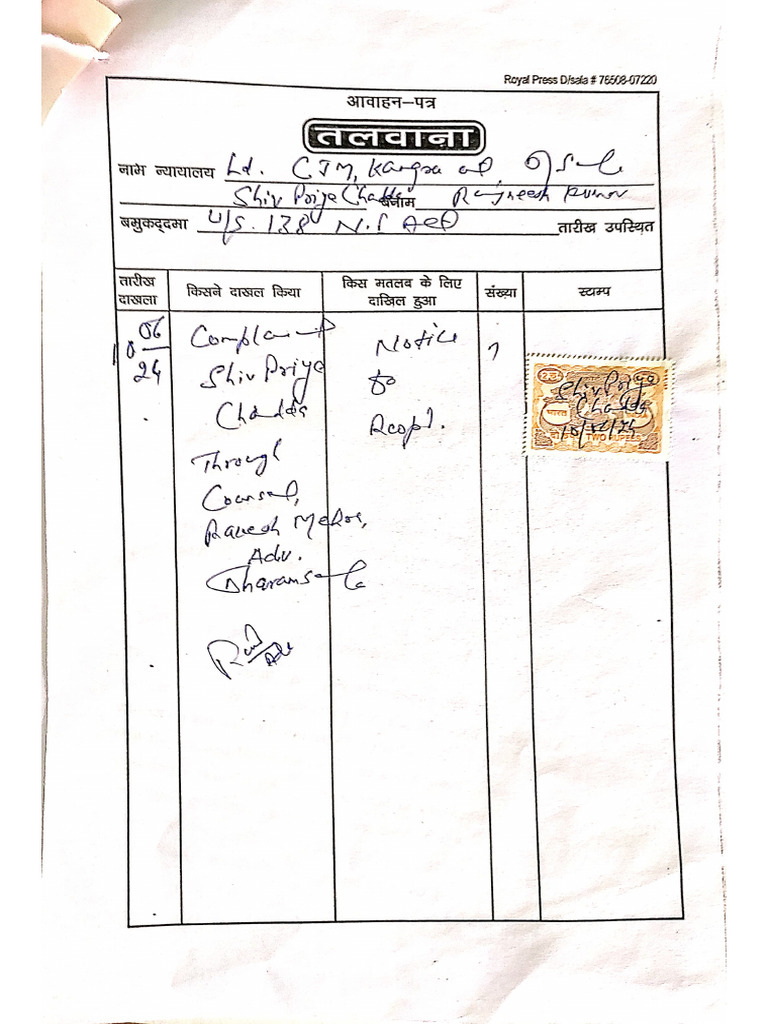 Royal Press D/sala # 76508-07220
आवाहन-पत्र
तलवाना
नाम न्यायालय Ld. CJM, Kangra at D/Sala
Shiv Priya Chadda बनाम Rajneesh Kumar
बमुकद्दमा U/S. 138 N.I Act तारीख उपस्थित
तारीख दाखला किसने दाखल किया किस मतलब के लिए दाखिल हुआ संख्या स्टाम्प
10 06 24 Complainant Notice 1
Shiv Priya to
Chadda Respt.
Through
Counsel,
Rakesh Mehra,
Adv.
Dharamsala
Shiv Priya
Chadda
भारत
TWO RUPEES